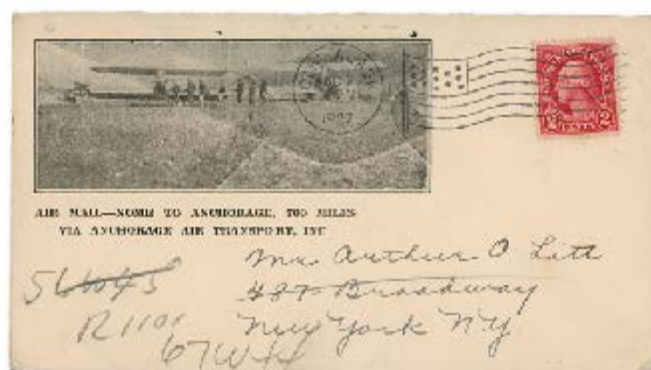 1927
2 CENTS 2
AIR MAIL—NOME TO ANCHORAGE, 700 MILES
VIA ANCHORAGE AIR TRANSPORT, INC
Mr Arthur O Lett
487 Broadway
New York NY
R1101
67W44